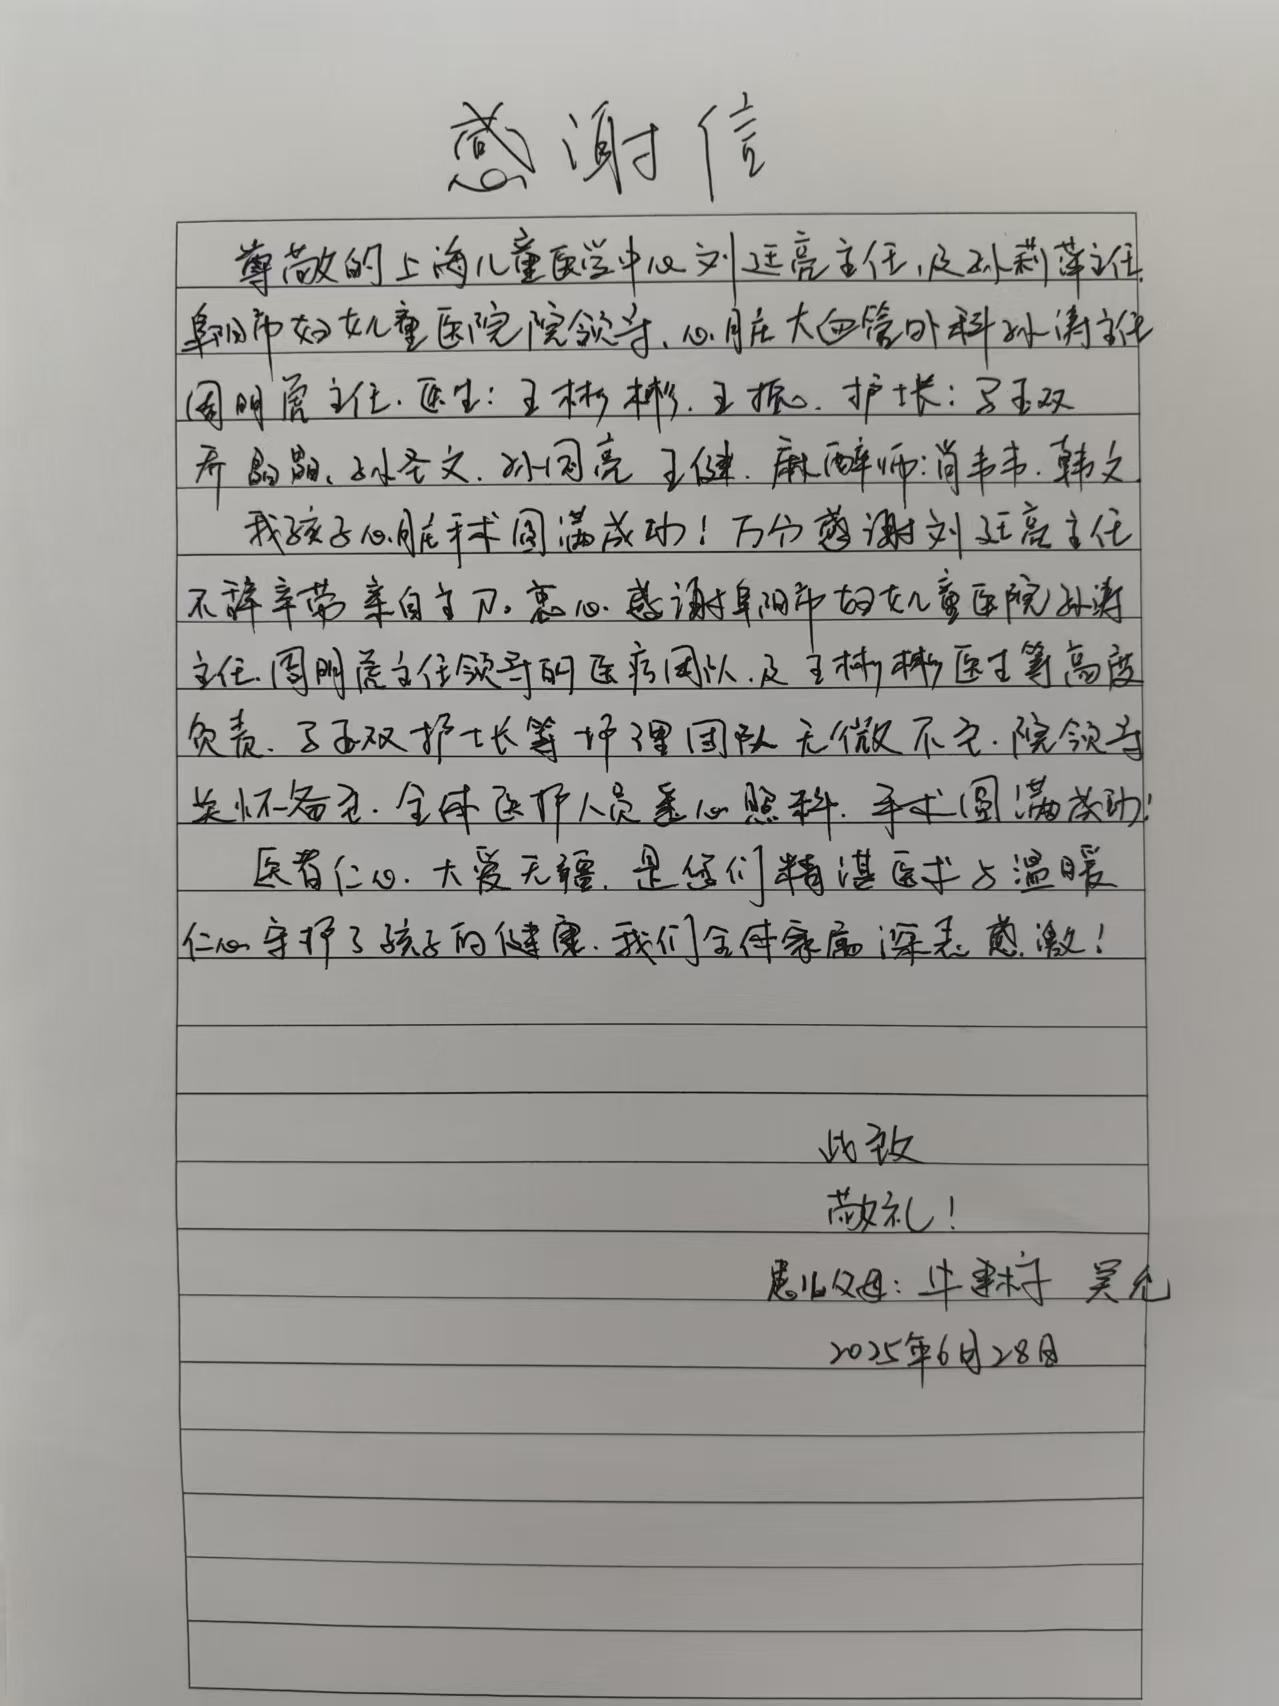 感谢信
尊敬的上海儿童医学中心刘廷亮主任,及孙莉萍主任
阜阳市妇女儿童医院院领导、心脏大血管外科孙涛主任
周明虎主任.医生:王彬彬.王振.护士长:马玉双
乔晶晶、孙圣文.孙国亮 王健.麻醉师:尚韦韦.韩文.
我孩子心脏手术圆满成功!万分感谢刘廷亮主任
不辞辛劳亲自主刀。衷心感谢阜阳市妇女儿童医院孙涛
主任.周明虎主任领导的医疗团队.及王彬彬医生等高度
负责.马玉双护士长等护理团队无微不至.院领导
关怀备至.全体医护人员悉心照料.手术圆满成功!
医者仁心.大爱无疆.是您们精湛医术与温暖
仁心守护了孩子的健康.我们全体家属深表感激!
此致
敬礼!
患儿父母: 吴允
2025年6月28日